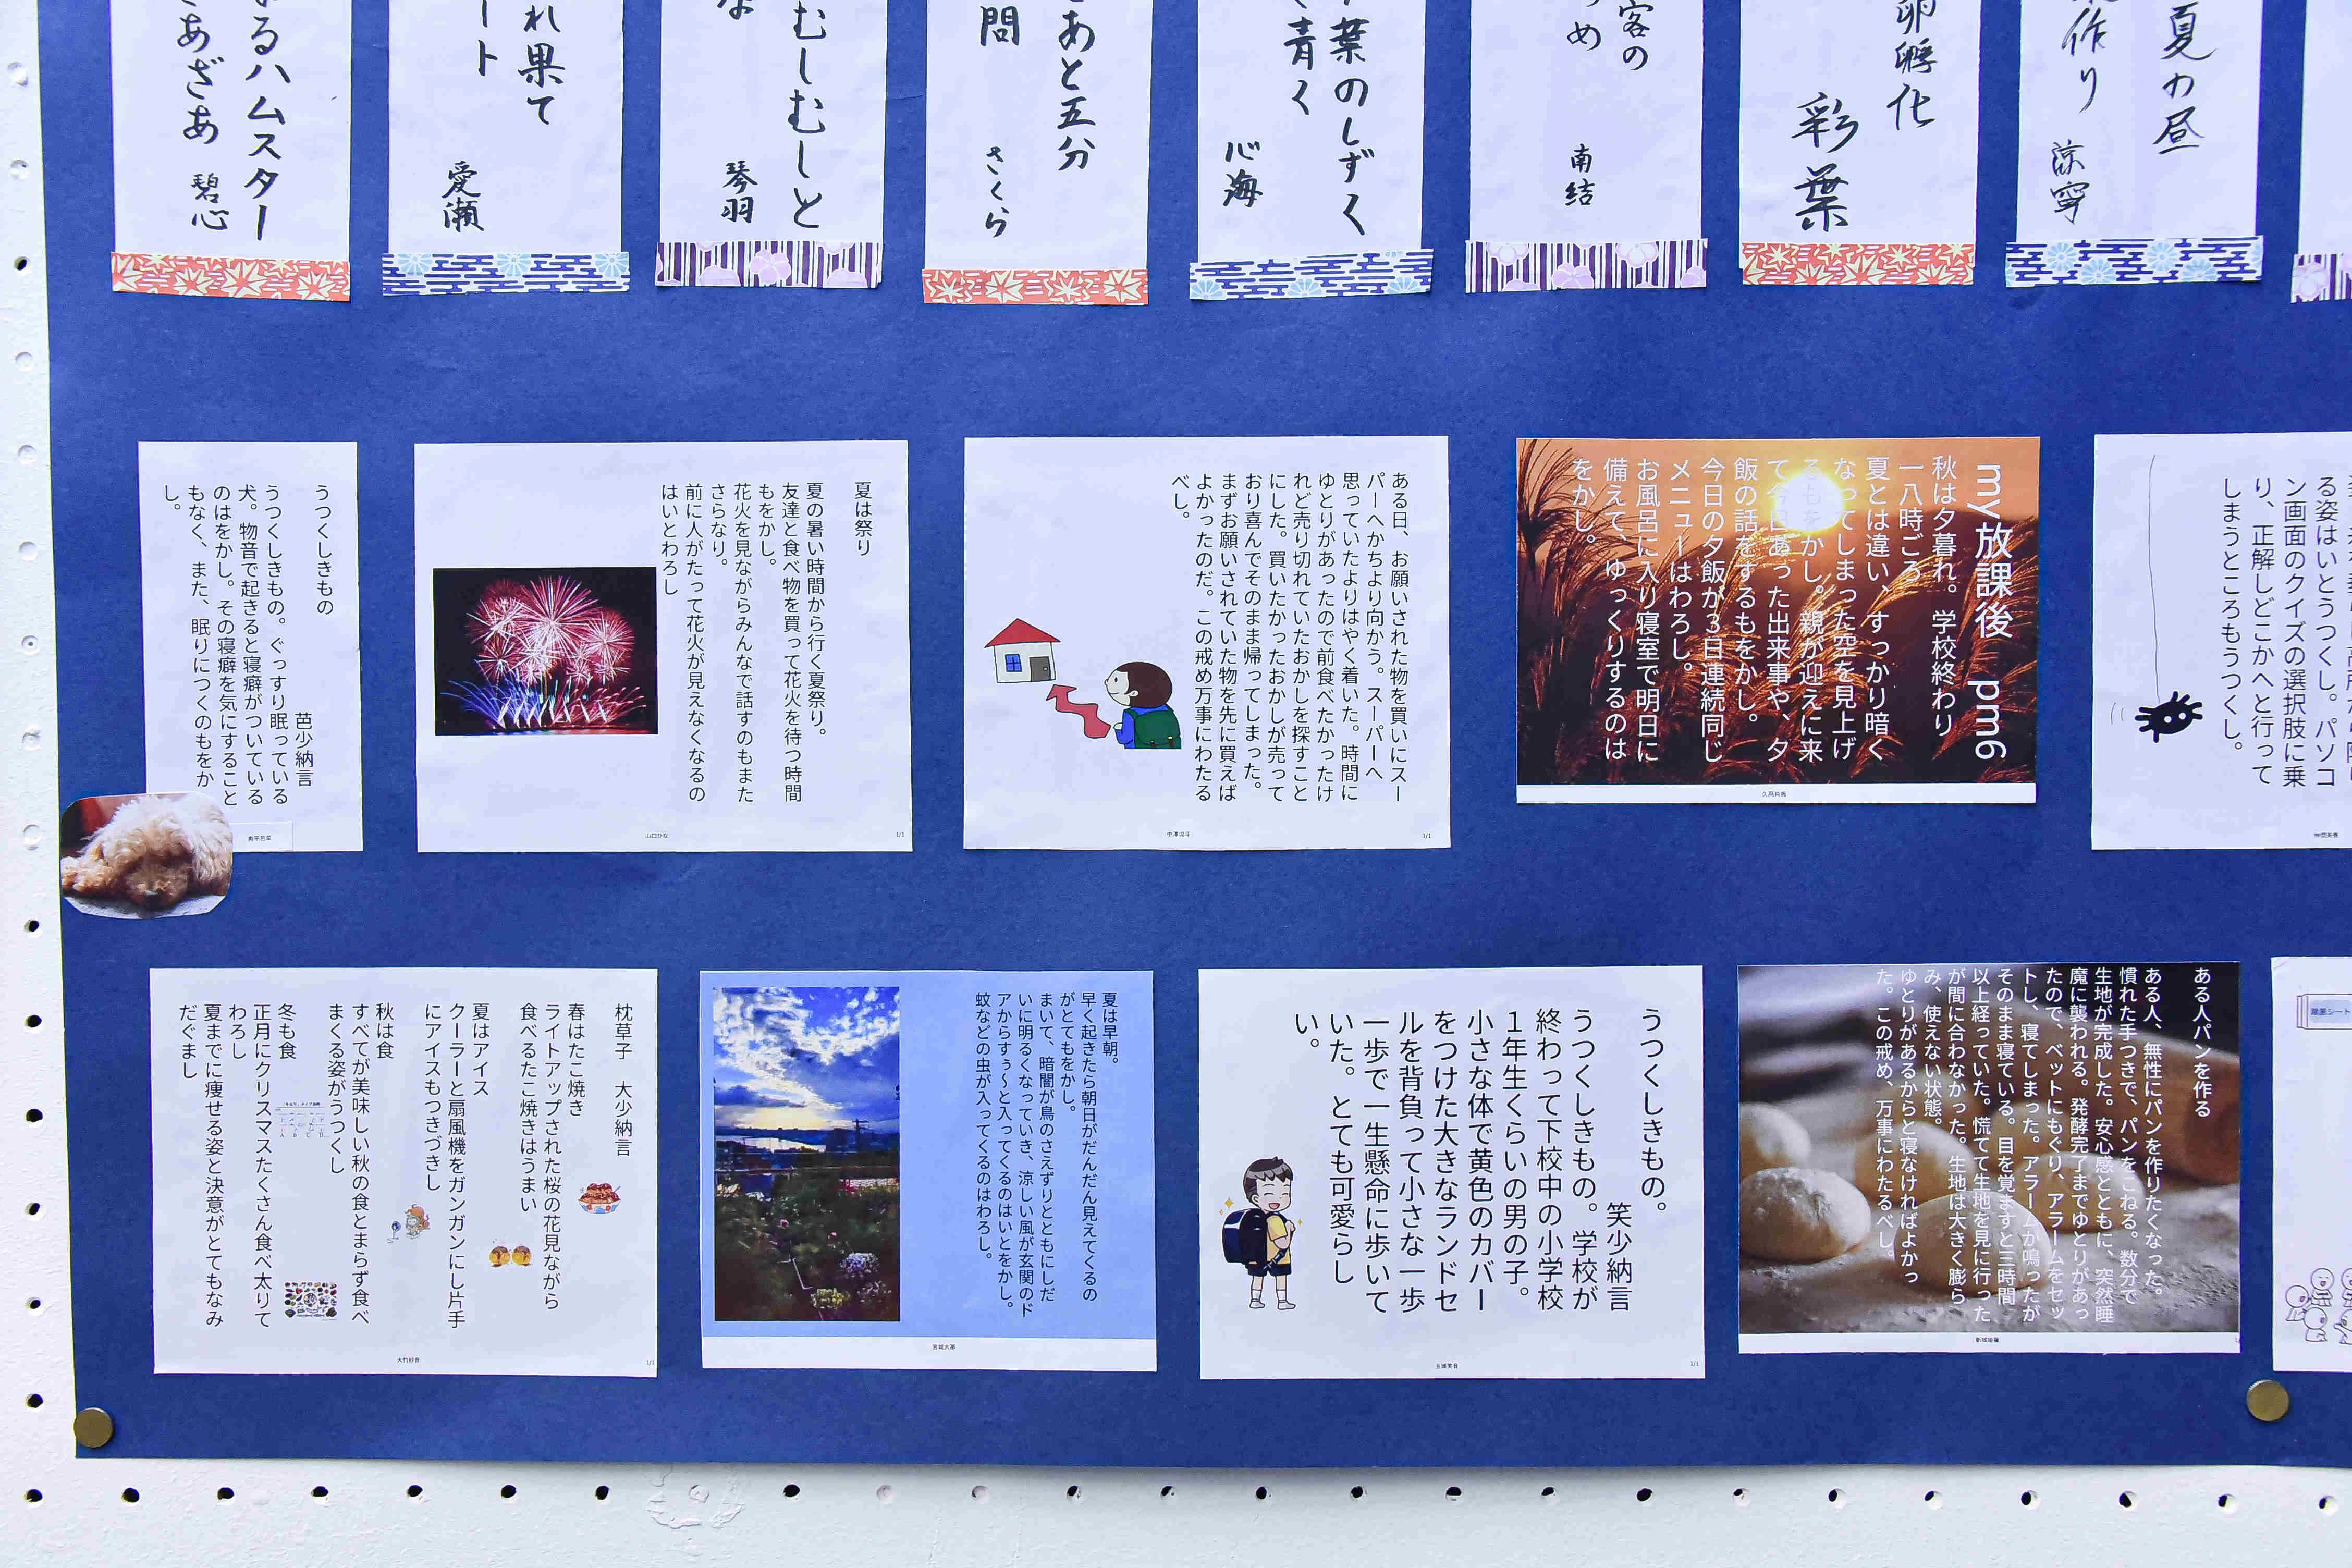 夏の昼
作り
涼寧
卵孵化
彩葉
客の
め
南結
葉のしずく
青く
心海
あと五分
問
さくら
むしむしと
な
琴羽
れ果て
ート
愛瀬
るハムスター
あざあ
碧心
る姿はいとうつくし。パソコ
ン画面のクイズの選択肢に乗
り、正解しどこかへと行って
しまうところもうつくし。
my放課後 pm6
秋は夕暮れ。学校終わり
一八時ごろ
夏とは違い、すっかり暗く
なってしまった空を見上げ
るもをかし。親が迎えに来
て今日あった出来事や、夕
飯の話をするもをかし。
今日の夕飯が３日連続同じ
メニューはわろし。
お風呂に入り寝室で明日に
備えて、ゆっくりするのは
をかし。
ある日、お願いされた物を買いにスー
パーへかちより向かう。スーパーへ
思っていたよりはやく着いた。時間に
ゆとりがあったので前食べたかったけ
れど売り切れていたおかしを探すこと
にした。買いたかったおかしが売って
おり喜んでそのまま帰ってしまった。
まずお願いされていた物を先に買えば
よかったのだ。この戒め万事にわたる
べし。
1/1
夏は祭り
夏の暑い時間から行く夏祭り。
友達と食べ物を買って花火を待つ時間
もをかし。
花火を見ながらみんなで話すのもまた
さらなり。
前に人がたって花火が見えなくなるの
はいとわろし
山口ひな
1/1
うつくしきもの
芭少納言
うつくしきもの。ぐっすり眠っている
犬。物音で起きると寝癖がついている
のはをかし。その寝癖を気にすること
もなく、また、眠りにつくのもをか
し。
ある人パンを作る
ある人、無性にパンを作りたくなった。
慣れた手つきで、パンをこねる。数分で
生地が完成した。安心感とともに、突然睡
魔に襲われる。発酵完了までゆとりがあっ
たので、ベットにもぐり、アラームをセッ
トし、寝てしまった。アラームが鳴ったが
そのまま寝ている。目を覚ますと三時間
以上経っていた。慌てて生地を見に行った
が間に合わなかった。生地は大きく膨ら
み、使えない状態。
ゆとりがあるからと寝なければよかっ
た。この戒め、万事にわたるべし。
うつくしきもの。
笑少納言
うつくしきもの。学校が
終わって下校中の小学校
１年生くらいの男の子。
小さな体で黄色のカバー
をつけた大きなランドセ
ルを背負って小さな一歩
一歩で一生懸命に歩いて
いた。とても可愛らし
い。
1/1
夏は早朝。
早く起きたら朝日がだんだん見えてくるの
がとてもをかし。
まいて、暗闇が鳥のさえずりとともにしだ
いに明るくなっていき、涼しい風が玄関のド
アからすぅ〜と入ってくるのはいとをかし。
蚊などの虫が入ってくるのはわろし。
枕草子 大少納言
春はたこ焼き
ライトアップされた桜の花見ながら
食べるたこ焼きはうまい
夏はアイス
クーラーと扇風機をガンガンにし片手
にアイスもつきづきし
秋は食
すべてが美味しい秋の食とまらず食べ
まくる姿がうつくし
冬も食
正月にクリスマスたくさん食べ太りて
わろし
夏までに痩せる姿と決意がとてもなみ
だぐまし
1/1